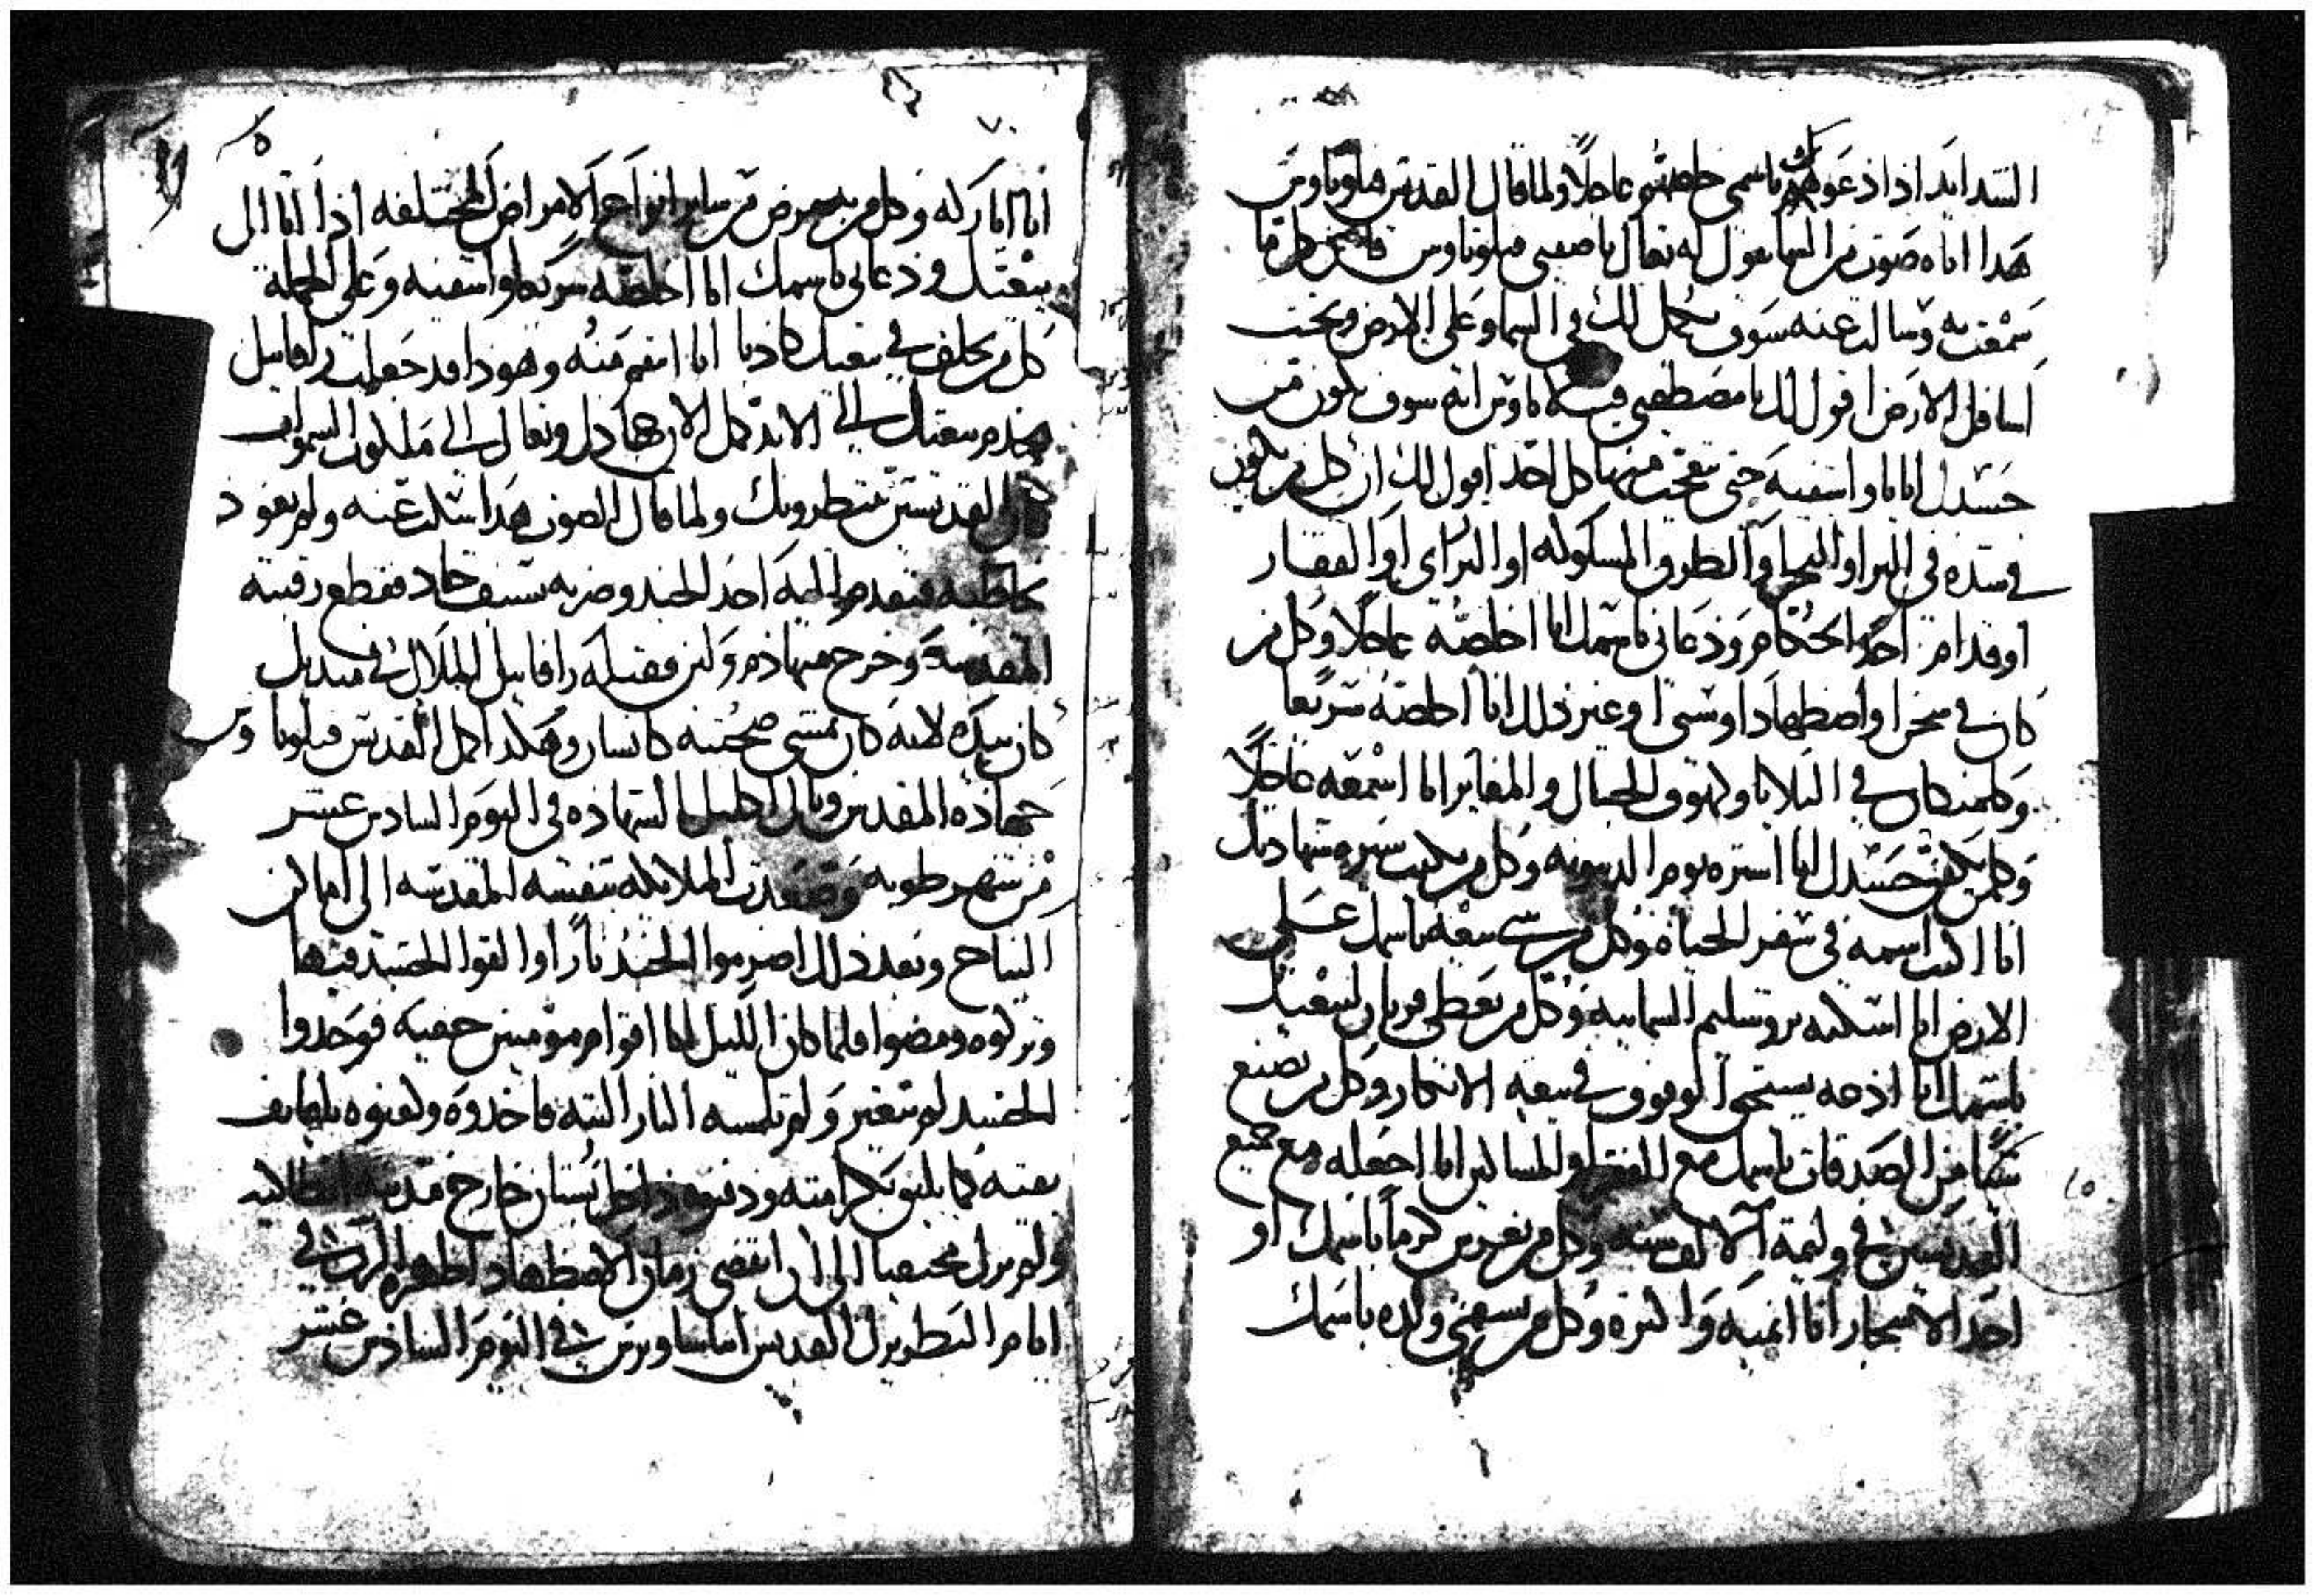 الشدايد اذا ذعوك باسمي خلصتهم عاجلا ولما قال القديس فيلوباوس
هدا اتاه صوت من السما يقول له تعال يا صفيي فيلوباوس فان كل ما
سمعت به وسالت عنه سوف يكمل لك في السما وعلى الارض وتحت
اسافل الارض اقول لك يا مصطفيي فيلوباوس انه سوف يكون من
جسدك اياتا واشفيه حتى يتعجب منها كل احد اقول لك ان كل من يكون
في شده في البر او البحر او الطرق المسكونه او البراري او القفار
او قدام احد الحكام وذعاني باسمك انا اخلصه عاجلا وكل من
كان في سجن او اضطهاد او سبي او غير ذلك انا اخلصه سريعا
وكلمن كان في البلايا ولهوف الجبال والمغاير انا اسمعه عاجلا
وكلمن يكفن جسدك انا استره يوم الدينونه وكل من يكتب سيره شهادتك
انا اكتب اسمه في سفر الحياة وكل من يبني بيعه باسمك على
الارض انا اسكنه يروشليم السماييه وكل من يعطي قربان لبيعتك
باسمك انا اذعه يستحق الوقوف في بيعه الابكار وكل من يصنع
شيا من الصدقات باسمك مع الفقرا والمساكين انا اجعله مع جميع
القديسين في وليمة الالف سنه وكل من يغرس كرما باسمك او
احد الاشجار انا انميه واكثره وكل من يسمي ولده باسمك
٧٠
انا اباركه وكل من به مرض من ساير انواع الامراض المختلفه اذا اتا الى
بيعتك وذعاني باسمك انا اخلصه سريعا واشفيه وعلى الجملة
كل من يحلف في بيعتك كاذبا انا انتقم منه وهوذا قد جعلت رافاييل
يخدم بيعتك الى الابد كمل الان جهادك وتعال الى ملكوت السموات
كل القديسين ينتظرونك ولما قال الصوت هدا سكت عنه ولم يعود
يخاطبه فتقدم اليه احد الجند وضربه بسيف حاد فقطع رقبته
المقدسة وخرج منها دم ولبن فقبله رافاييل الملاك في منديل
كان بيده لانه كان يمشي صحبته كانسان وهكدا اكمل القديس فيلوباوس
جهاذه المقدس ونال اكليل الشهاده في اليوم السادس عشر
من شهر طوبه وصعدت الملايكه بنفسه المقدسه الى اماكن
النياح وبعد ذلك اضرموا الجند نارا والقوا الجسد فيها
وتركوه ومضوا فلما كان الليل اتا اقوام مومنين خفيه فوجدوا
الجسد لم يتغير ولم تلمسه النار البته فاخدوه ولفوه بلفايف
نقيه كما يليق بكرامته ودفنوه داخل بستان خارج مدينة انطاكيه
ولم يزل مختفيا الى ان انقضى زمان الاضطهاد اظهره الرب في
ايام البطريرك القديس اماساويرس في اليوم السادس عشر